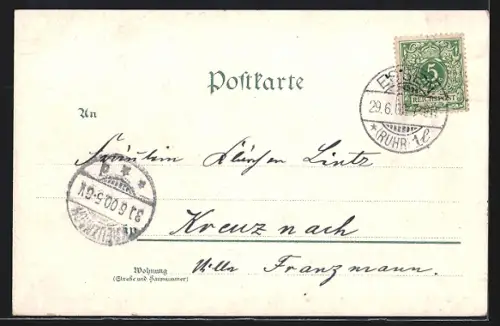 Postkarte
5
REICHSPOST
ESSEN
29.6.
* (RUHR) 1 l
An
Fräulein Klärchen Lintz
30.6.00.5-6N.
in Kreuznach
Wohnung
(Straße und Hausnummer)
Villa Franzmann.